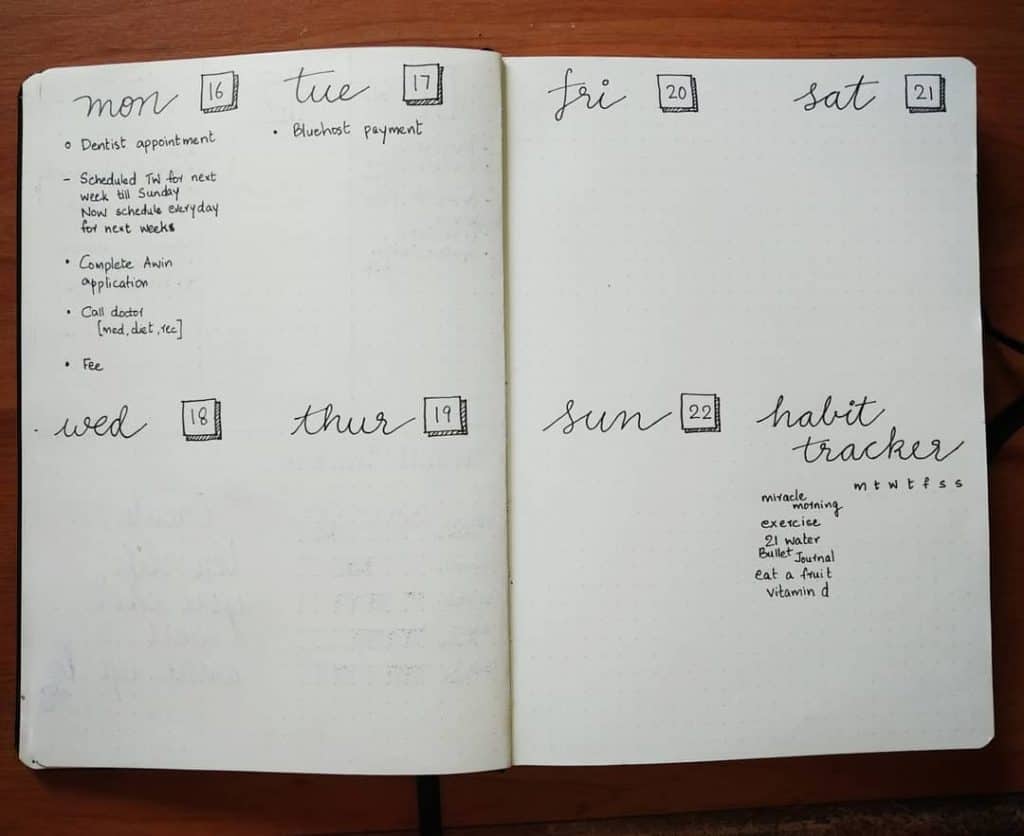 mon 16
o Dentist appointment
- Scheduled TW for next
week till Sunday
Now schedule everyday
for next weeks
• Complete Awin
application
• Call doctor
[med, diet, rec]
• Fee
tue 17
• Bluehost payment
wed 18
thur 19
fri 20
sat 21
sun 22
habit
tracker
m t w t f s s
miracle
morning
exercise
2l water
Bullet Journal
eat a fruit
vitamin d